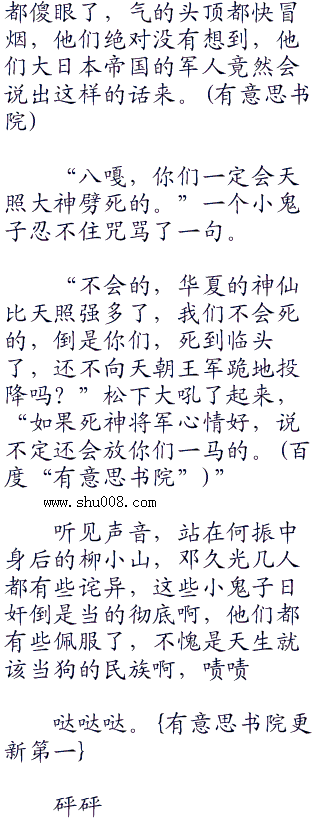 都傻眼了，气的头顶都快冒
烟，他们绝对没有想到，他
们大日本帝国的军人竟然会
说出这样的话来。(有意思书
院)
“八嘎，你们一定会天
照大神劈死的。”一个小鬼
子忍不住咒骂了一句。
“不会的，华夏的神仙
比天照强多了，我们不会死
的，倒是你们，死到临头
了，还不向天朝王军跪地投
降吗？”松下大吼了起来，
“如果死神将军心情好，说
不定还会放你们一马的。(百
度“有意思书院”)”
www.shu008.com
听见声音，站在何振中
身后的柳小山，邓久光几人
都有些诧异，这些小鬼子日
奸倒是当的彻底啊，他们都
有些佩服了，不愧是天生就
该当狗的民族啊，啧啧
哒哒哒。{有意思书院更
新第一}
砰砰